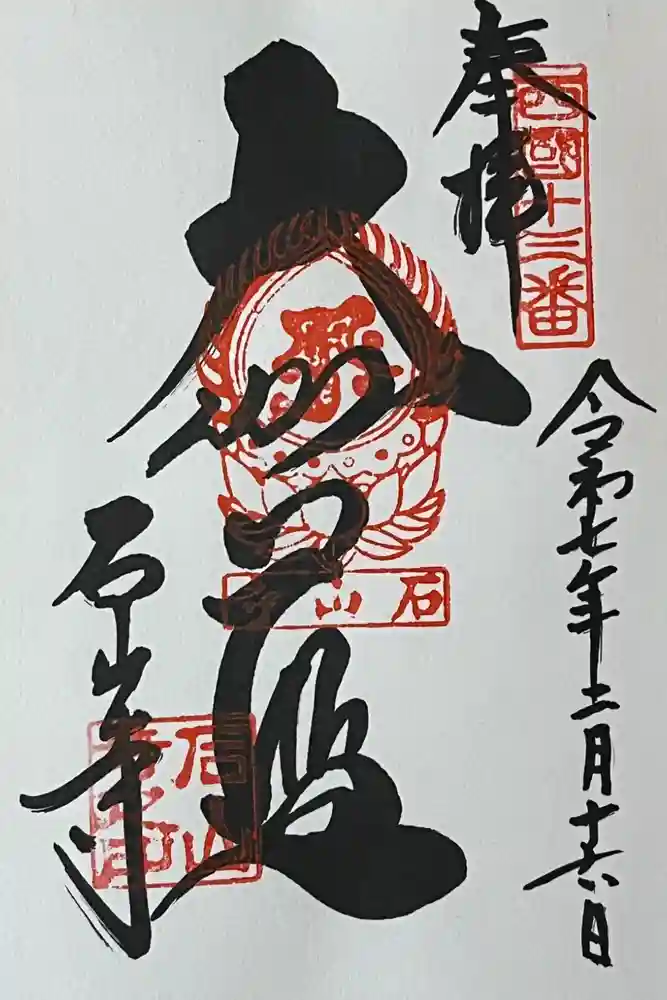 奉拝
西國十三番
令和七年十二月十六日
大伽藍
石山寺
石山寺